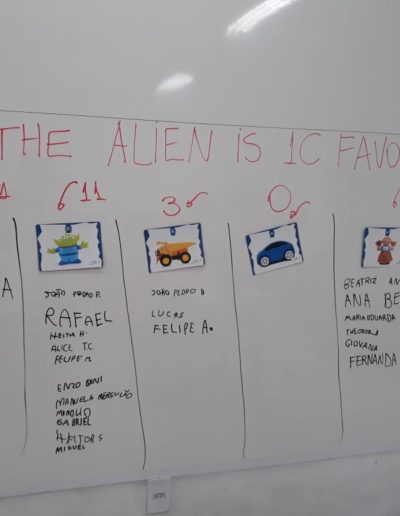 THE ALIEN IS 1C FAVO
A
11
3
0
6
A
JOÃO PEDRO P.
RAFAEL
HEITOR H.
ALICE T.C.
FELIPE M.
ENZO DANI
MANUELA MERGULÃO
MANOLIO
GABRIEL
HEITOR S
MIGUEL
JOÃO PEDRO B
LUCAS
FELIPE A.
BEATRIZ AN
ANA BE
MARIA EDUARDA
THEODORA
GIOVANA
FERNANDA